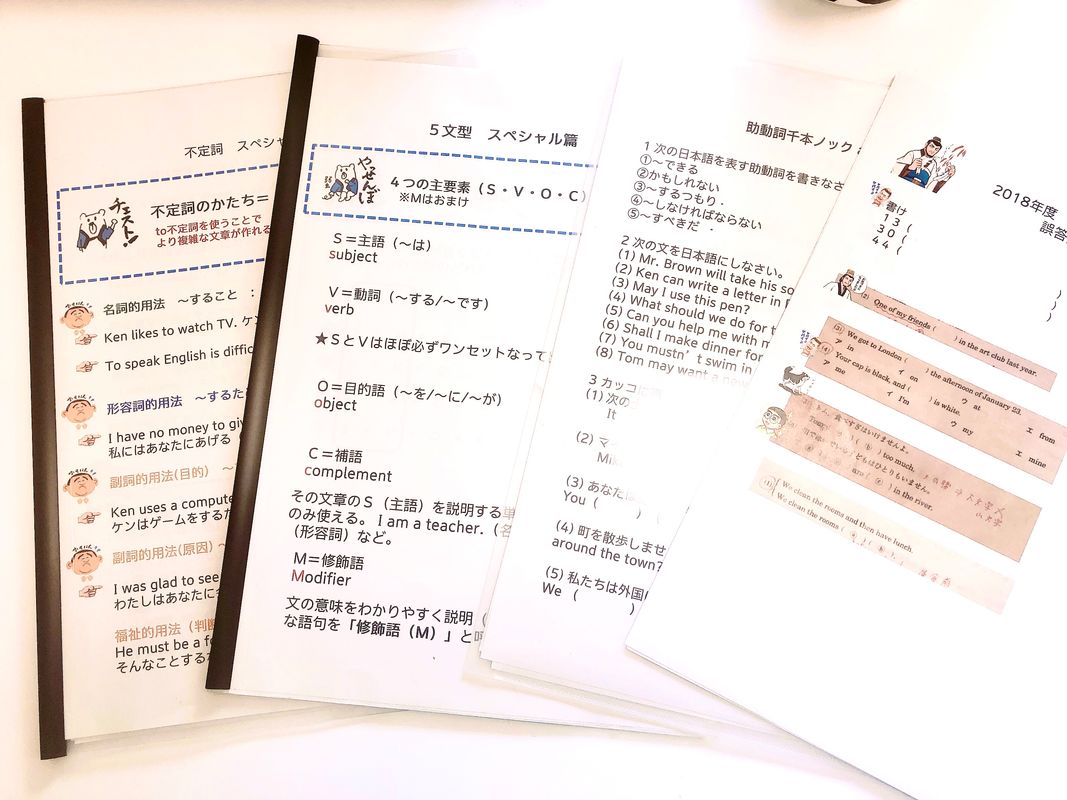 不定詞 スペシ
チェスト!!
不定詞のかたち＝
to不定詞を使うことで
より複雑な文章が作れる
名詞的用法 ～すること ：
Ken likes to watch TV. ケン
To speak English is diffic
形容詞的用法 ～するた
I have no money to giv
私にはあなたにあげる
副詞的用法(目的) ～
Ken uses a compute
ケンはゲームをするた
副詞的用法(原因) ～
I was glad to see
わたしはあなたに会
福祉的用法（判断
He must be a fo
そんなことする
５文型 スペシャル篇
やっせんぼ
４つの主要素（S・V・O・C）
※Mはおまけ
S＝主語（～は）
subject
V＝動詞（～する/～です）
verb
★SとVはほぼ必ずワンセットなって
O＝目的語（～を/～に/～が）
object
C＝補語
complement
その文章のS（主語）を説明する単
のみ使える。I am a teacher.（名
（形容詞）など。
M＝修飾語
Modifier
文の意味をわかりやすく説明（
な語句を「修飾語（M）」と呼
助動詞千本ノック
1 次の日本語を表す助動詞を書きなさ
①～できる
②かもしれない
③～するつもり・
④～しなければならない
⑤～すべきだ ・
2 次の文を日本語にしなさい。
(1) Mr. Brown will take his so
(2) Ken can write a letter in
(3) May I use this pen?
(4) What should we do for t
(5) Can you help me with m
(6) Shall I make dinner for
(7) You mustn't swim in
(8) Tom may want a new
3 カッコに
(1) 次の
It
(2) マ
Mik
(3) あなたは
You ( )
(4) 町を散歩しませ
around the town?
(5) 私たちは外国
We ( )
2018年度
誤答
書け
1 3 (
3 0 (
4 4 (
(2) One of my friends ( ) in the art club last year.
(3) We got to London ( ) the afternoon of January 23.
ア in イ on ウ at エ from
(4) Your cap is black, and ( ) is white.
ア me イ I'm ウ my エ mine
トム、食べすぎはいけませんよ。
Tom, ( ) ( b ) too much.
are ( ) in the river.
(1) We clean the rooms and then have lunch.
We clean the rooms (